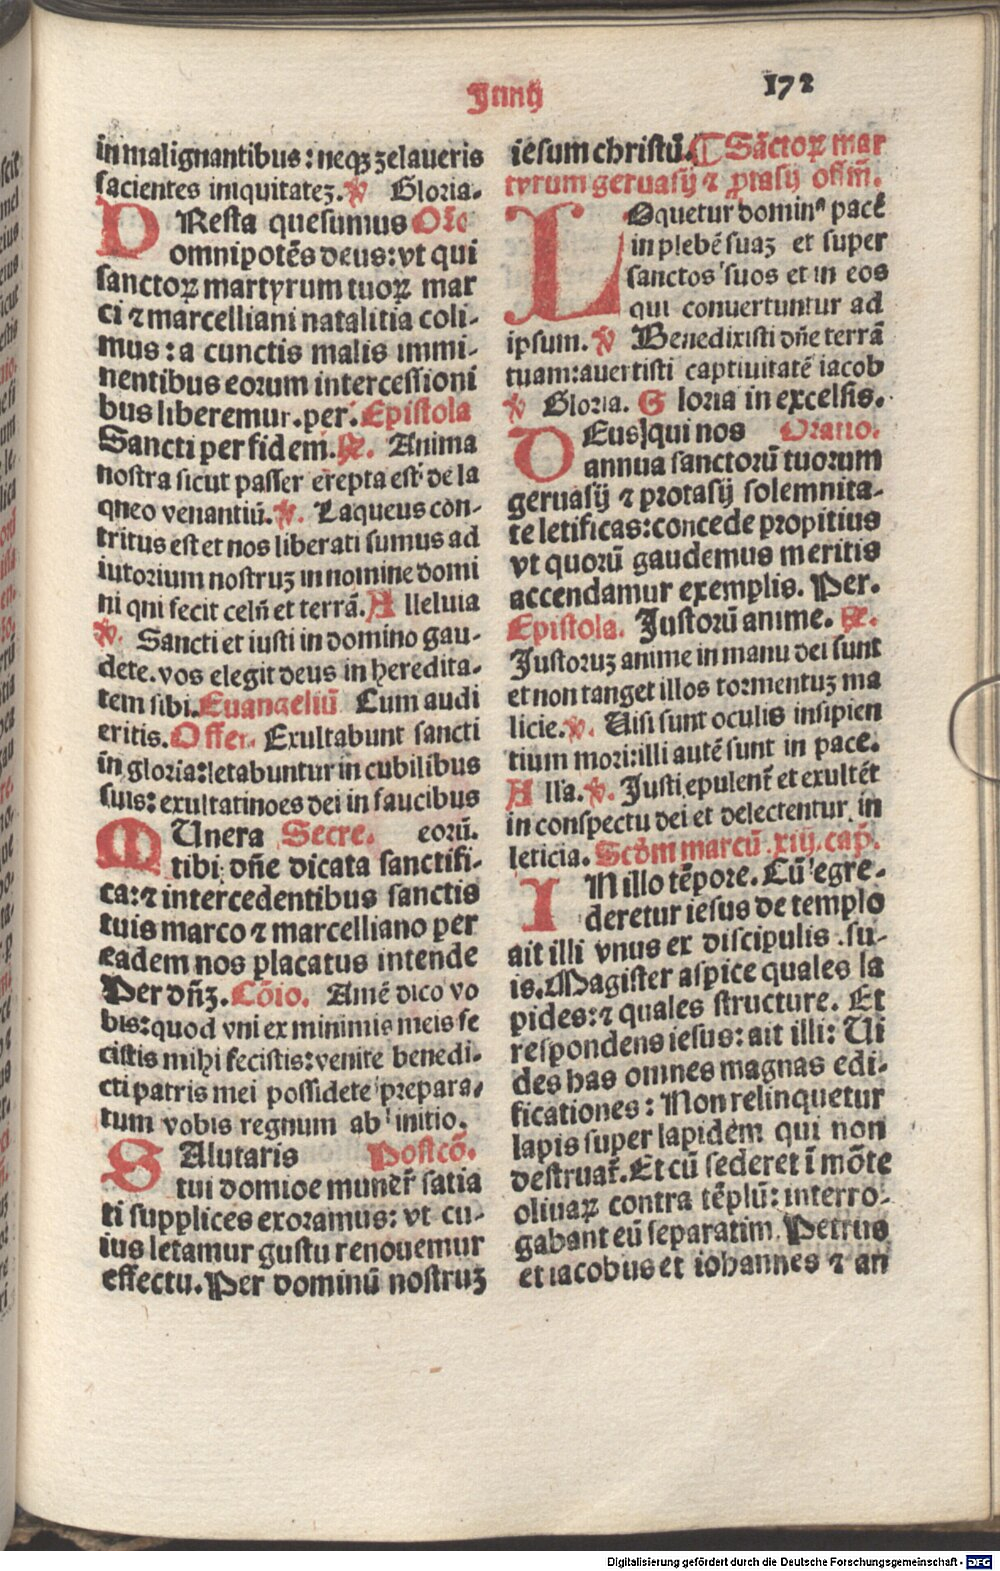 Junij
172
in malignantibus: neqꝫ zelaueris
facientes iniquitateꝫ. ℣ Gloria.
PResta quesumus Or̄o
omnipotēs deus: vt qui
sanctoꝝ martyrum tuoꝝ mar
ci ⁊ marcelliani natalitia coli-
mus: a cunctis malis immi-
nentibus eorum intercessioni
bus liberemur. per. Epistola
Sancti per fidem. ℟. Anima
nostra sicut passer erepta est de la
queo venantiū. ℣. Laqueus con-
tritus est et nos liberati sumus ad
iutorium nostruꝫ in nomine domi
ni qui fecit celū et terrā. Alleluia
℣. Sancti et iusti in domino gau-
dete. vos elegit deus in heredita-
tem sibi. Euangeliū Cum audi
eritis. Offer. Exultabunt sancti
in gloria: letabuntur in cubilibus
suis: exultatinoes dei in faucibus
MUnera Secre. eorū.
tibi dn̄e dicata sanctifi-
ca: ⁊ intercedentibus sanctis
tuis marco ⁊ marcelliano per
eadem nos placatus intende
Per dn̄ꝫ. Cōio. Amē dico vo
bis: quod vni ex minimis meis fe
cistis mihi fecistis: venite benedi-
cti patris mei possidete prepara-
tum vobis regnum ab initio.
SAlutaris Postcō.
tui domioe muner̄ satia
ti supplices exoramus: vt cu-
ius letamur gustu renouemur
effectu. Per dominū nostruꝫ
iesum christū. ¶ Sāctoꝝ mar
tyrum geruasij ⁊ ꝓtasij offm̄.
LOquetur dominꝰ pacē
in plebē suaꝫ et super
sanctos suos et in eos
qui conuertuntur ad
ipsum. ℣ Benedixisti dn̄e terrā
tuam: auertisti captiuitatē iacob
℣ Gloria. Gloria in excelsis.
DEus qui nos Oratio.
annua sanctorū tuorum
geruasij ⁊ protasij solemnita-
te letificas: concede propitius
vt quorū gaudemus meritis
accendamur exemplis. Per.
Epistola. Justorū anime. ℟.
Justoruꝫ anime in manu dei sunt
et non tanget illos tormentuꝫ ma
licie. ℣. Uisi sunt oculis insipien
tium mori: illi autē sunt in pace.
Alla. ℣. Justi epulent̄ et exultēt
in conspectu dei et delectentur in
leticia. Scd̄m marcū .xiij. cap̄.
IN illo tēpore. Cū egre-
deretur iesus de templo
ait illi vnus ex discipulis su-
is. Magister aspice quales la
pides: ⁊ quales structure. Et
respondens iesus: ait illi: Ui
des has omnes magnas edi-
ficationes: Non relinquetur
lapis super lapidem qui non
destruat̄. Et cū sederet ī mōte
oliuaꝝ contra tēplū: interro-
gabant eū separatim Petrus
et iacobus et iohannes ⁊ an
Digitalisierung gefördert durch die Deutsche Forschungsgemeinschaft - DFG